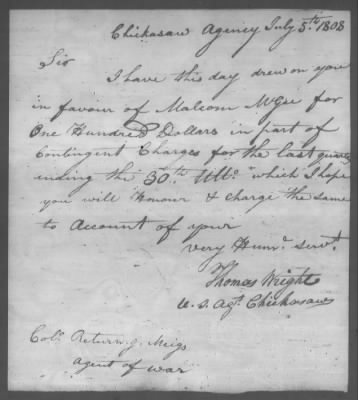 Chickasaw Agency July 5th 1808
Sir
I have this day drew on you
in favour of Malcom McGee for
One Hundred Dollars in part of
Contingent Charges for the last quarter
ending the 30th Ulto. which I hope
you will Honour & charge the same
to Account of your
very Humе. servt.
Thomas Wright
U. S. Agt. Chickasaws
Colo. Return J. Meigs
agent of war